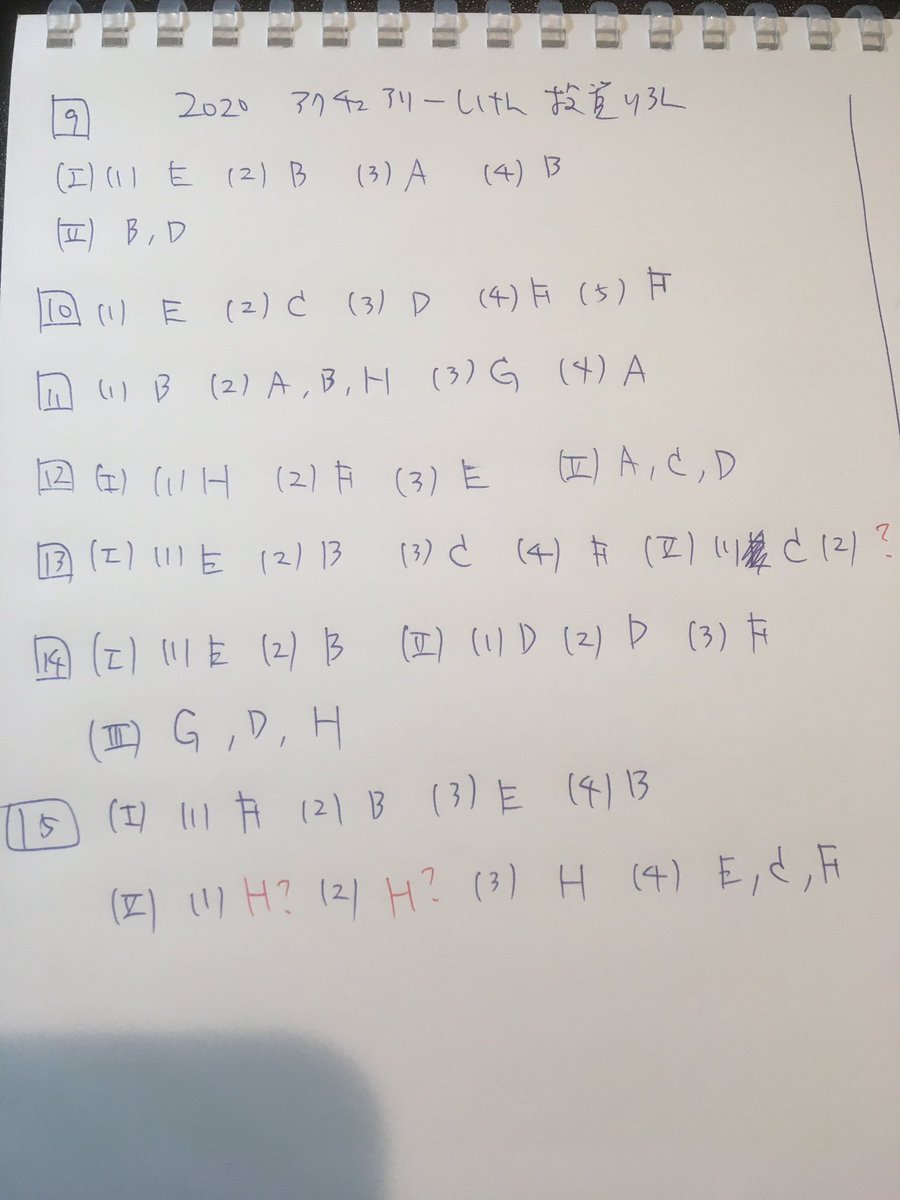 9 2020 アクチュアリー 投資
(I) (1) E (2) B (3) A (4) B
(II) B, D
10 (1) E (2) C (3) D (4) F (5) F
11 (1) B (2) A, B, H (3) G (4) A
12 (I) (1) H (2) F (3) E (II) A, C, D
13 (I) (1) E (2) B (3) C (4) F (II) (1) C (2) ?
14 (I) (1) E (2) B (II) (1) D (2) D (3) F
(III) G, D, H
15 (I) (1) F (2) B (3) E (4) B
(II) (1) H? (2) H? (3) H (4) E, C, F